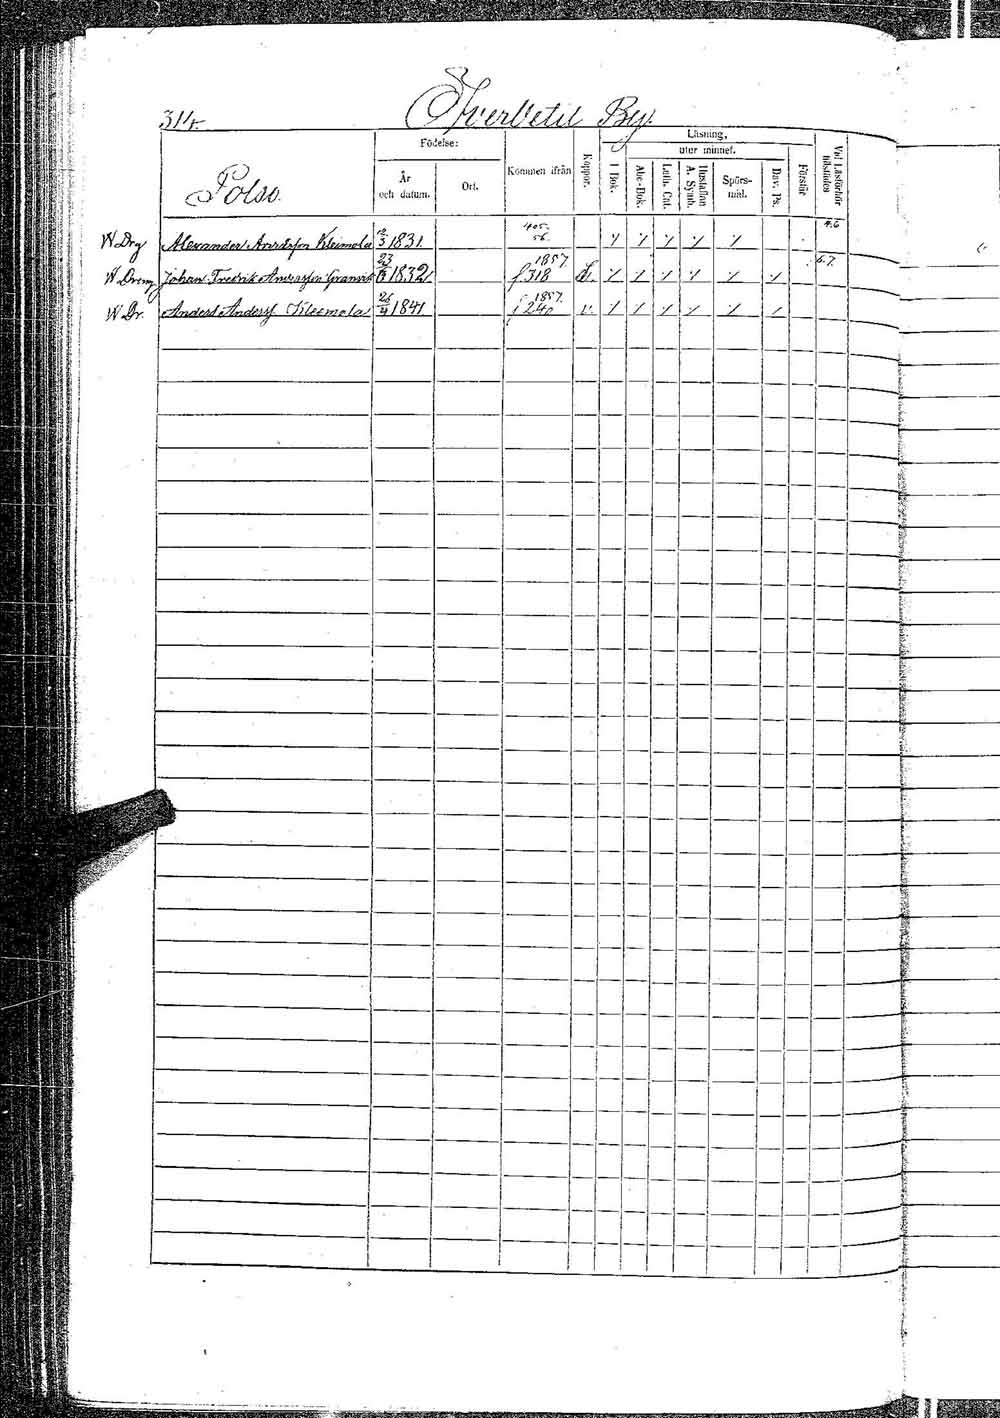 Öfverbetil By.
311r.
Polso.
Födelse:
År och datum.
Ort.
Kommen ifrån
Koppor.
Läsning,
utur minnet.
I Bok.
Abc-Bok.
Luth. Cat.
Hustaflan A. Symb.
Spörs-mål.
Dav. Ps.
Förstår
Vid Läsförhör tillstädes
W Drg Alexander Andersson Kleimola 12/3 1831. 405. 56. 4.6
Johan Fredrik Andersson Granvik 1832. 1857. f 318 6.7.
W Dr. Anders Anderss Kleemola 26/4 1841 1857. f 240 v.